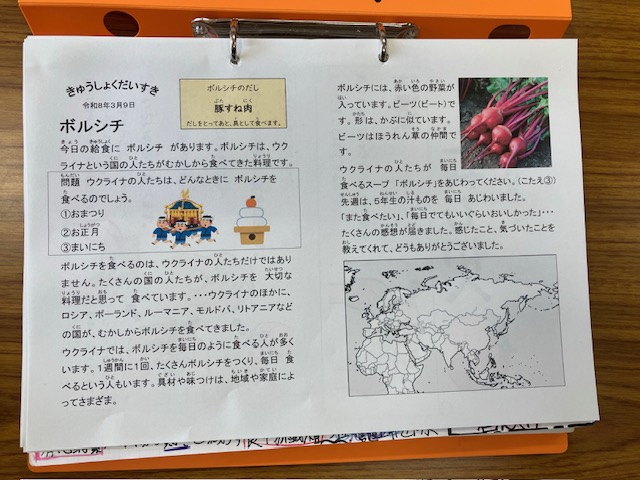 きゅうしょくだいすき
令和8年3月9日
ボルシチのだし
豚すね肉
だしをとってあと、具として食べます。
ボルシチ
今日の給食に ボルシチ があります。ボルシチは、ウク
ライナという国の人たちがむかしから食べてきた料理です。
問題 ウクライナの人たちは、どんなときに ボルシチを
食べるのでしょう。
①おまつり
②お正月
③まいにち
ボルシチを食べるのは、ウクライナの人たちだけではあり
ません。たくさんの国の人たちが、ボルシチを 大切な
料理だと思って 食べています。・・・ウクライナのほかに、
ロシア、ポーランド、ルーマニア、モルドバ、リトアニアなど
の国が、むかしからボルシチを食べてきました。
ウクライナでは、ボルシチを毎日のように食べる人が多く
います。1週間に1回、たくさんボルシチをつくり、毎日 食
べるという人もいます。具材や味つけは、地域や家庭によ
ってさまざま。
ボルシチには、赤い色の野菜が
入っています。ビーツ(ビート)で
す。形は、かぶに似ています。
ビーツはほうれん草の仲間で
す。
ウクライナの人たちが 毎日
食べるスープ 「ボルシチ」をあじわってください。(こたえ③)
先週は、6年生の汁ものを 毎日 あじわいました。
「また食べたい」、「毎日でてもいいぐらいおいしかった」・・・
たくさんの感想が届きました。感じたこと、気づいたことを
教えてくれて、どうもありがとうございました。